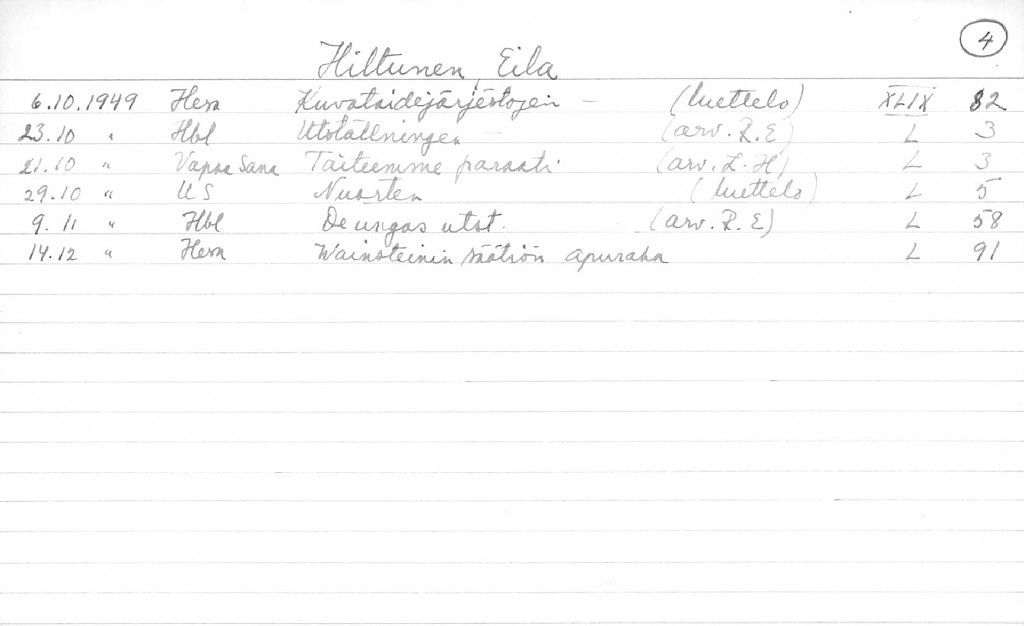 4
Hiltunen, Eila
6.10.1949 Hesa Kuvataidejärjestojen - (luettelo) XLIX 82
23.10 " Hbl Utställningen - (arv. R.E) L 3
21.10 " Vapaa Sana Taiteemme paraati (arv. L.H) L 3
29.10 " US Nuorten (luettelo) L 5
9.11 " Hbl De ungas utst. (arv. R.E) L 58
14.12 " Hesa Wainsteinin säätiön apuraha L 91